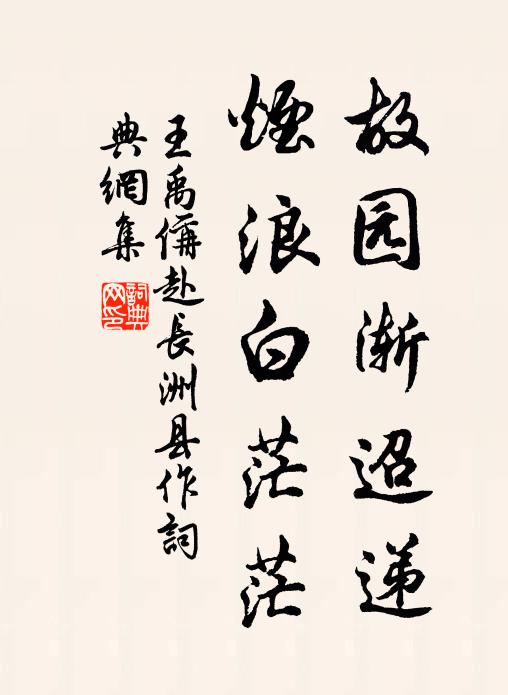 故园渐迢递
煙浪白茫茫
王禹偁赴長洲县作詞
典網集
詞典网印